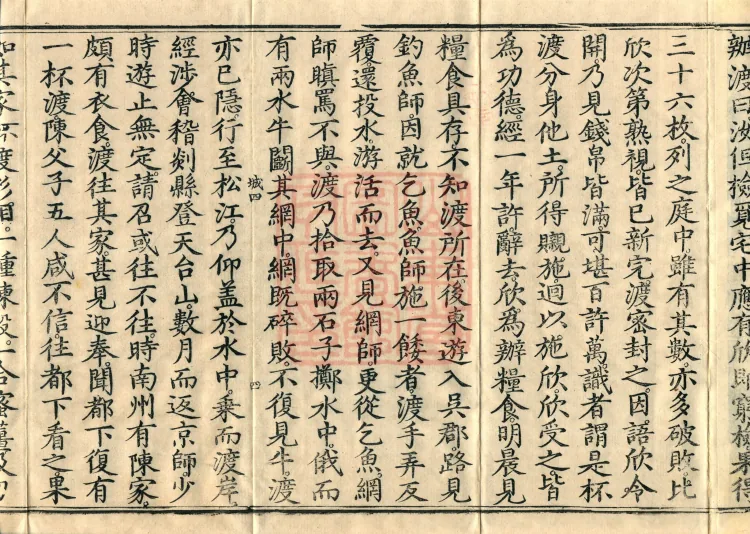 辦渡曰汝但檢覓宅中應有欣即窮檢果得
三十六枚。列之庭中。雖有其數。亦多破敗。比
欣次第熟視。皆已新完。渡密封之。因語欣令
開。乃見錢帛皆滿。可堪百許萬。識者謂是杯
渡分身他土。所得嚫施。迴以施欣。欣受之。皆
爲功德。經一年許。辭去。欣爲辦糧食。明晨見
糧食具存。不知渡所在。後東遊入吳郡。路見
釣魚師。因就乞魚。魚師施一餧者。渡手弄反
覆。還投水。游活而去。又見網師。更從乞魚。網
師瞋罵不與。渡乃拾取兩石子擲水中。俄而
有兩水牛鬭其網中。網既碎敗。不復見牛。渡
城四 四
亦已隱。行至松江。乃仰蓋於水中。乘而渡岸。
經涉會稽剡縣登天台山。數月而返京師。少
時遊止無定。請召或往不往。時南州有陳家。
頗有衣食。渡往其家。甚見迎奉。聞都下復有
一杯渡。陳父子五人咸不信。往都下看之。果
如其家杯渡形相一種陳設一合蜜薑及刀